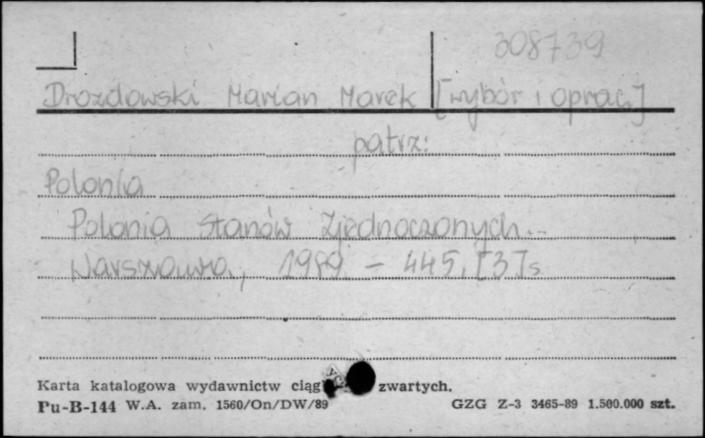 308739
Drozdowski Marian Marek [wybór i oprac.]
patrz:
Polonia
Polonia Stanów Zjednoczonych..
Warszawa, 1989 – 445, [3]s
Karta katalogowa wydawnictw ciąg zwartych.
Pu-B-144 W.A. zam. 1560/On/DW/89 GZG Z-3 3465-89 1.500.000 szt.